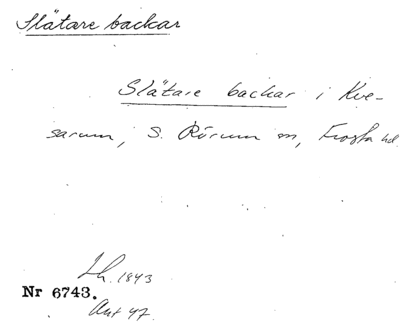 Slätare backar
Slätare backar i Kve-
sarum, S. Rörum sn, Frosta hd
Lh. 1843
Nr 6743.
Ant 47